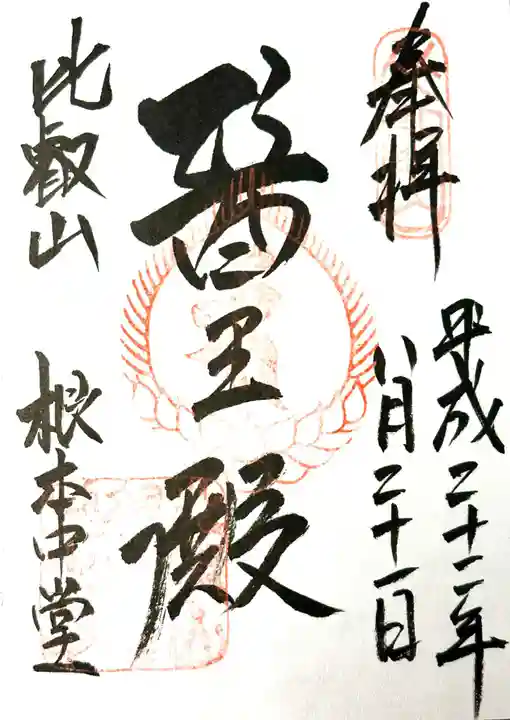 奉拝
平成二十二年
八月二十一日
醫王殿
比叡山
根本中堂